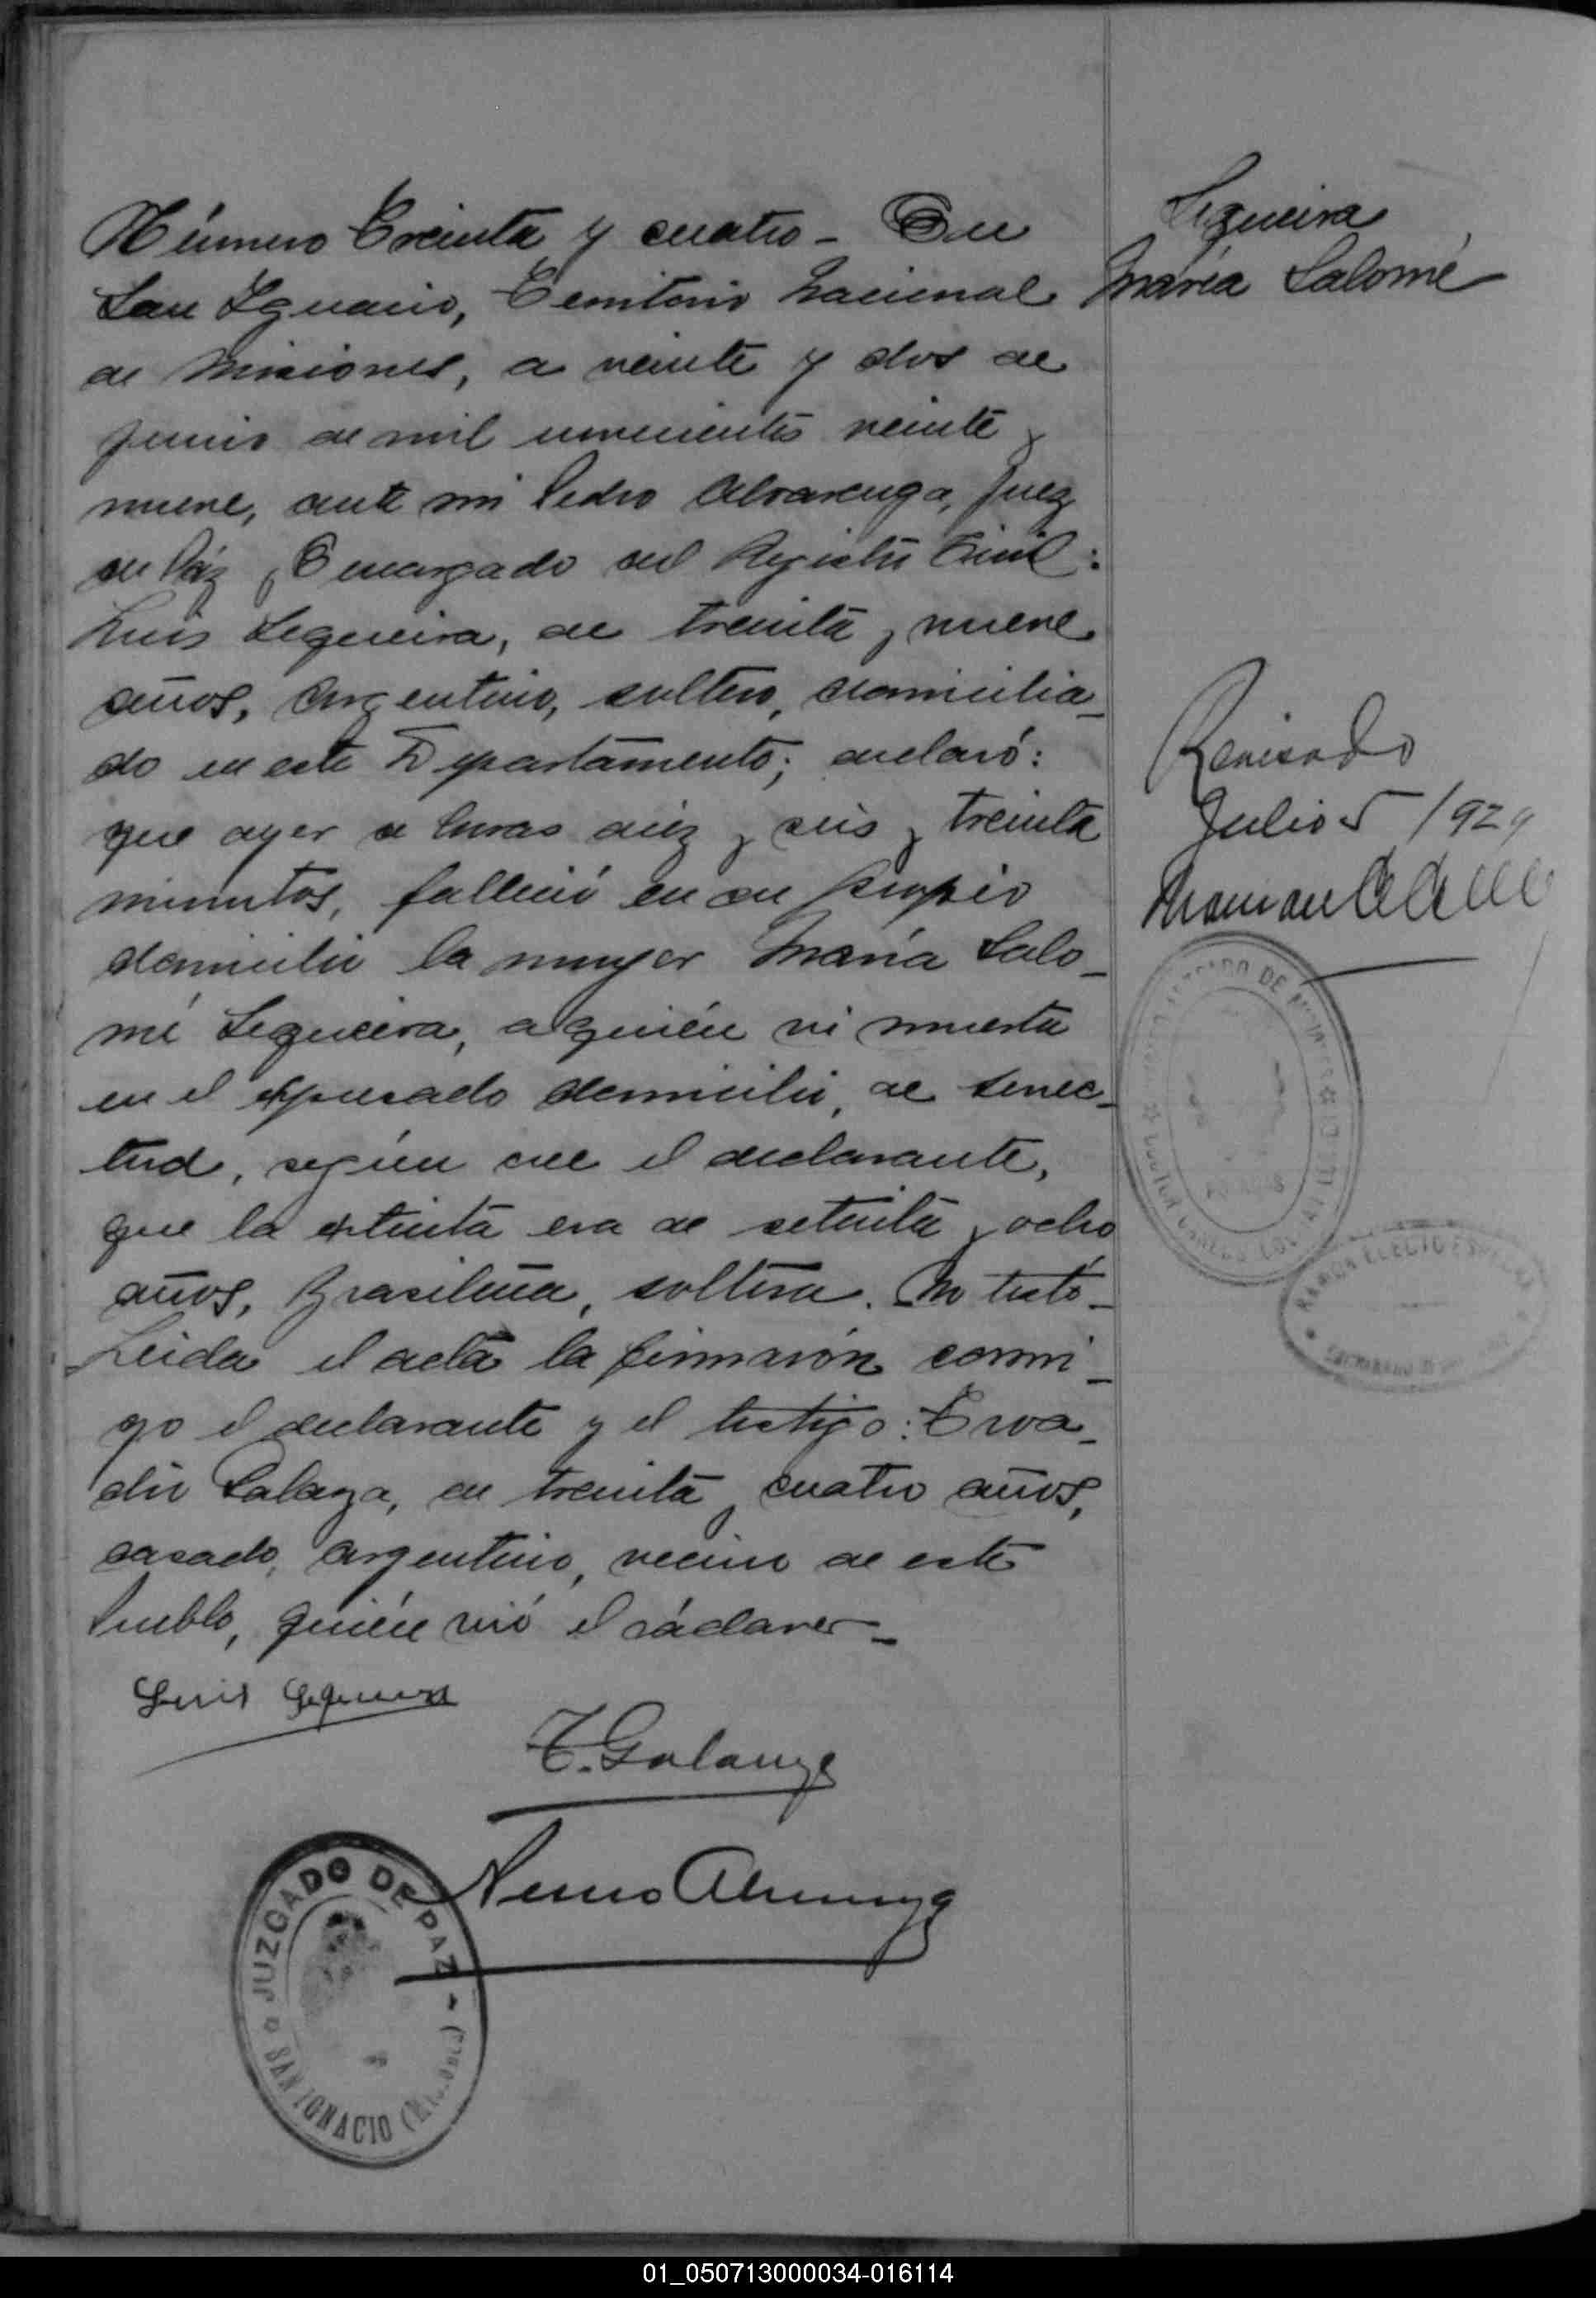 Número Treinta y cuatro - En
San Ignacio, Territorio Nacional
de Misiones, a veinte y dos de
junio de mil novecientos veinte y
nueve, ante mi Pedro Alvarenga, Juez
de Páz, Encargado del Registro Civil:
Luis Sequeira, de treinta y nueve
años, Argentino, soltero, domicilia-
do en este Departamento; declaró:
que ayer a horas diez y seis y treinta
minutos, falleció en su propio
domicilio la mujer María Salo-
mé Sequeira, a quién vi muerta
en el expresado domicilio, de senec-
tud, según cree el declarante,
que la extinta era de setenta y ocho
años, Brasileña, soltera. No testó-
Leida el acta la firmarón conmi-
go el declarante y el testigo:
en treinta y cuatro años,
casado, argentino, vecino de este
Pueblo, quién vió el cádaver-
Luis Sequeira
JUZGADO DE PAZ -
SAN IGNACIO (Misiones)
Sequeira
María Salomé
Revisado
Julio 5/929
01_050713000034-016114